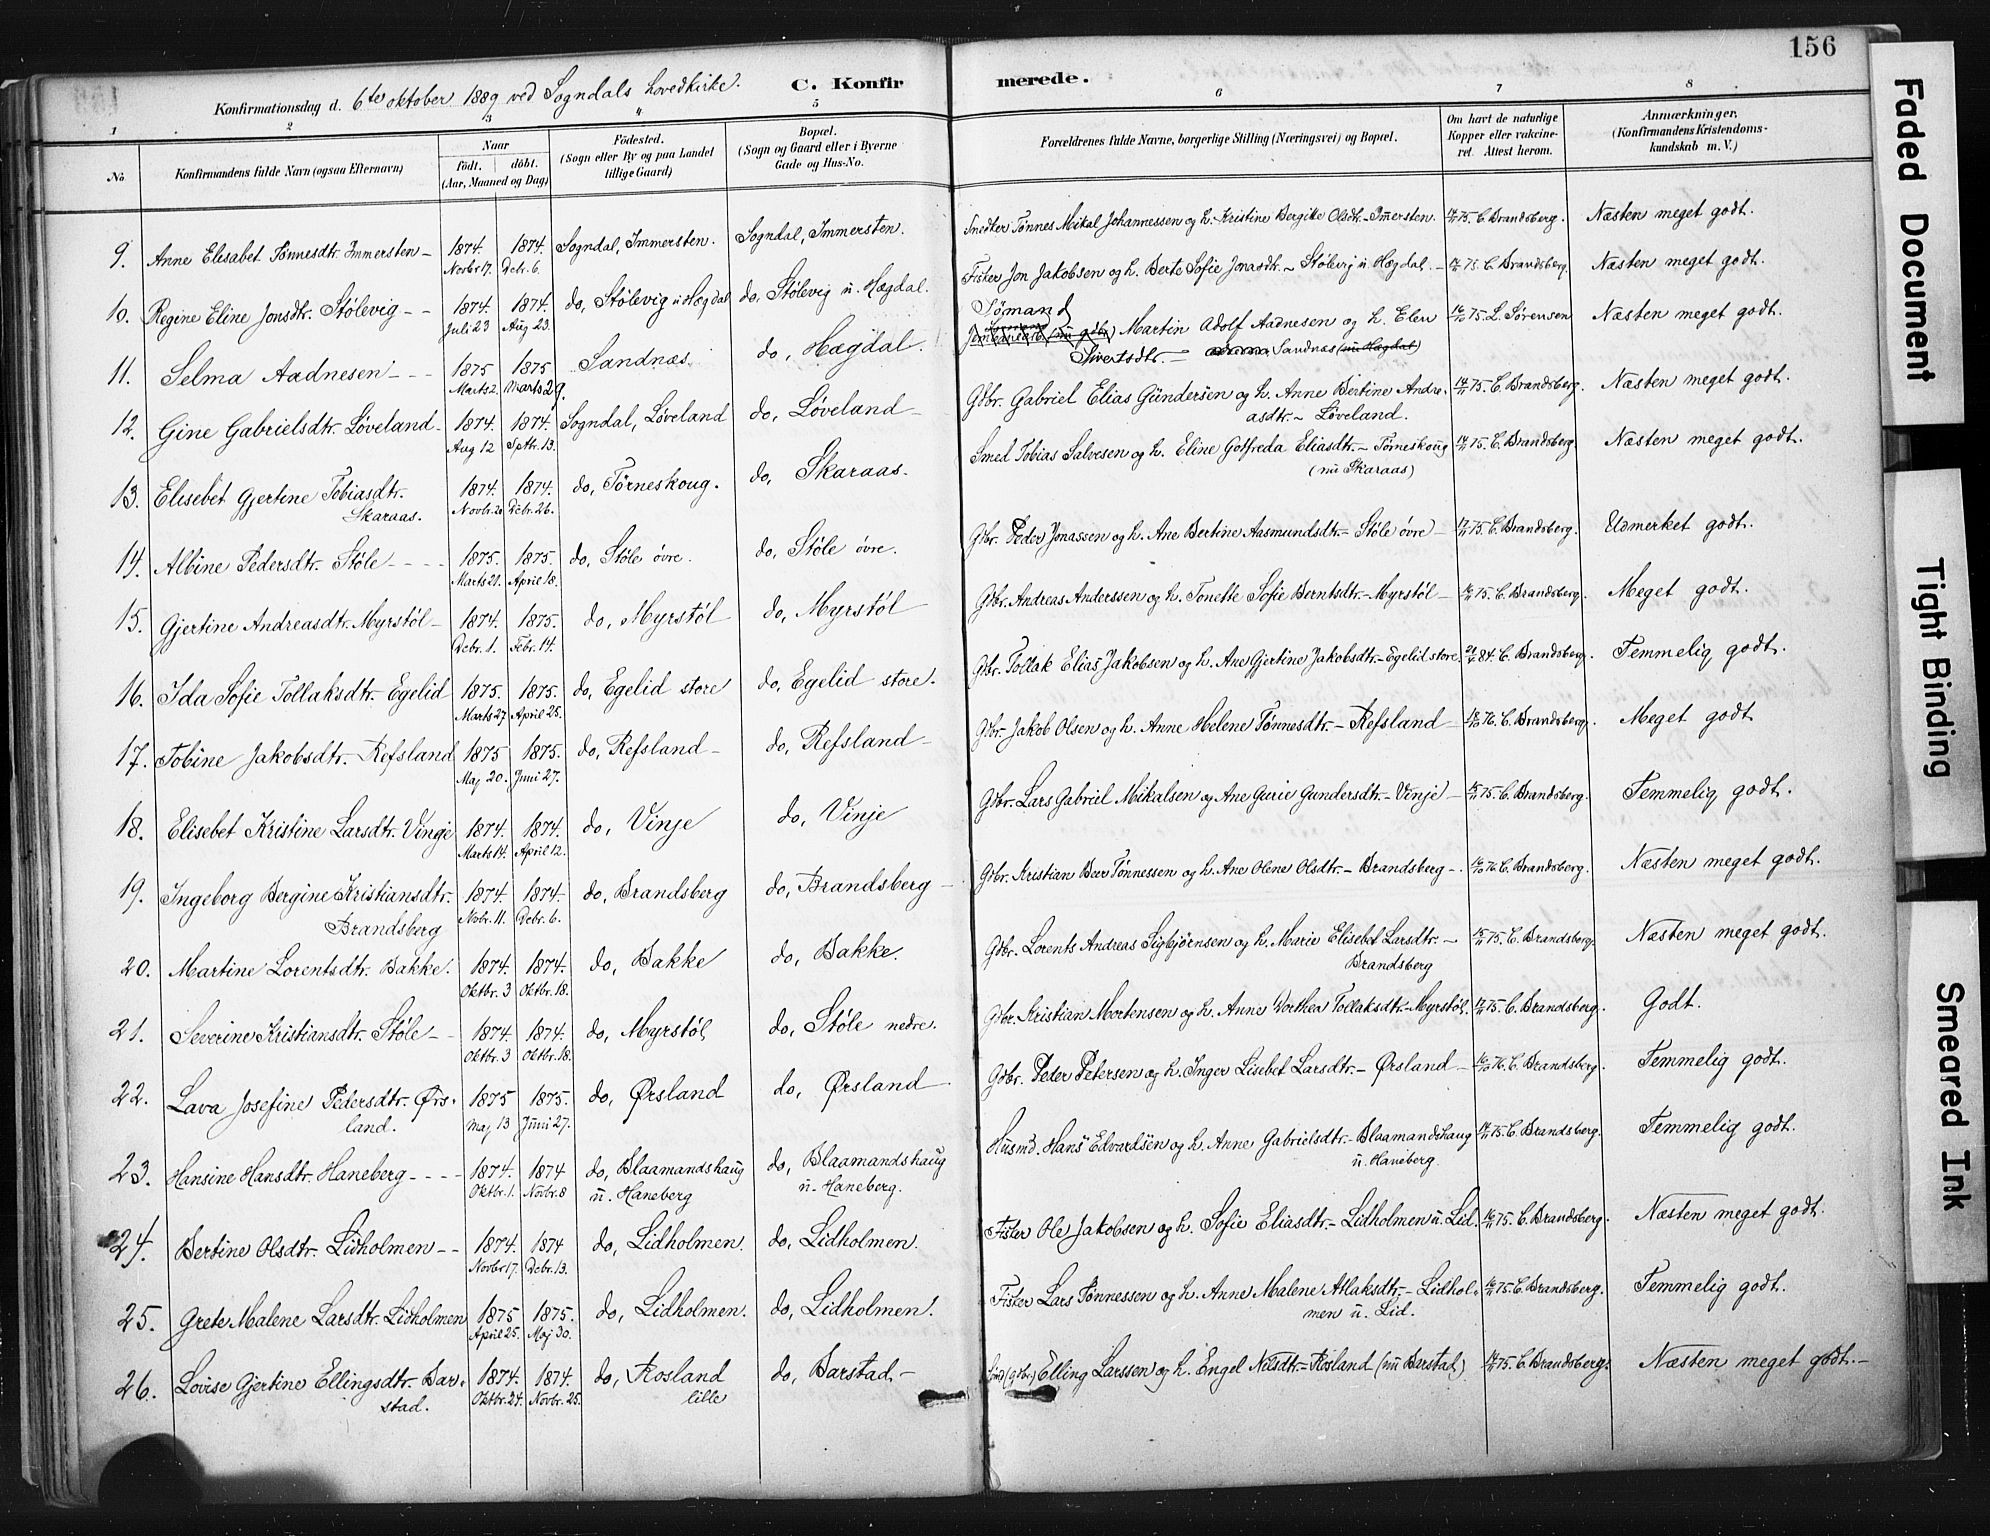 156
Konfirmationsdag d. 6te oktober 1889 ved Sogndals hovedkirke. C. Konfir merede.
1 2 3 4 5 6 7 8
No Konfirmandens fulde Navn (ogsaa Efternavn) Naar født. døbt. (Aar, Maaned og Dag) Fødested. (Sogn eller By og paa Landet tillige Gaard) Bopæl. (Sogn og Gaard eller i Byerne Gade og Hus-No. Forældrenes fulde Navne, borgerlige Stilling (Næringsvei) og Bopæl. Om havt de naturlige Kopper eller vakcineret. Attest herom. Anmærkninger. (Konfirmandens Kristendomskundskab m. V.)
9. Anne Elisabet Tønnesdtr. Immersten – 1874. Novbr 17. 1874. Debr. 6. Sogndal, Immersten. Sogndal, Immersten. Snedker Tønnes Mikal Johannessen og h. Kristine Bergitte Olsdtr. – Immersten. 75. C. Brandsberg. Næsten meget godt.
10. Regine Eline Jonsdtr. Stølevig – – 1874. Juli 23 1874. Aug 23. do, Stølevig u Hægdal do, Stølevig u. Hægdal. Fisker Jon Jakobsen og h. Berte Sofie Jonasdtr. – Stølevig u. Hægdal. – 75. C. Brandsberg. Næsten meget godt.
11. Selma Aadnesen – – – 1875 Marts 2. 1875 Marts 29. Sandnæs. do, Hægdal. Sømand Martin Adolf Aadnesen og h. Elen
Sivertsdtr. – Sandnæs (nu Hægdal) 75. L. Sørensen Næsten meget godt.
12. Gine Gabrielsdtr. Løveland – 1874. Aug 12 1874. Sptr. 13. Sogndal, Løveland do, Løveland – Gbr. Gabriel Elias Gundersen og h. Anne Bertine Andre-
asdtr. – Løveland. 75. C. Brandsberg. Næsten meget godt.
13. Elisebet Gjertine Tobiasdtr.
Skaraas. 1874. Novbr. 20 1874. Debr. 26. do, Tørneskoug. do, Skaraas. Smed Tobias Salvesen og h. Eline Gotfreda Eliasdtr. – Tørneskoug
(nu Skaraas) 75. C. Brandsberg. Næsten meget godt.
14. Albine Pedersdtr. Støle – – – – 1875. Marts 21. 1875. April 18. do, Støle øvre. do, Støle øvre. Gbr. Peder Jonassen og h. Ane Bertine Aasmundsdtr. – Støle øvre – 75. C. Brandsberg. Udmerket godt.
15. Gjertine Andreasdtr. Myrstøl – 1874. Debr. 1. 1875. Febr. 14. do, Myrstøl do, Myrstøl Gbr. Andreas Anderssen og h. Tonette Sofie Berntsdtr. – Myrstøl – 75. C. Brandsberg. Meget godt.
16. Ida Sofie Tollaksdtr. Egelid 1875. Marts 27 1875. April 25. do, Egelid store do, Egelid store. Gbr. Tollak Elias Jakobsen og h. Ane Gjertine Jakobsdtr. – Egelid store. 84. C. Brandsberg. Temmelig godt.
17. Tobine Jakobsdtr. Refsland 1875 Maj 20. 1875. Juni 27. do, Refsland – do, Refsland – Gbr. Jakob Olsen og h. Anne Helene Tønnesdtr. – Refsland – 76. C. Brandsberg. Meget godt
18. Elisebet Kristine Larsdtr. Vinje 1874. Marts 14. 1874. April 12. do, Vinje do, Vinje Gbr. Lars Gabriel Mikalsen og Ane Gurie Gundersdtr. – Vinje – 75. C. Brandsberg. Temmelig godt.
19. Ingeborg Bergine Kristiansdtr.
Brandsberg 1874. Novbr. 11. 1874. Debr. 6. do, Brandsberg do, Brandsberg – Gbr. Kristian Beer Tønnessen og h. Ane Olene Olsdtr. – Brandsberg – 76. C. Brandsberg. Næsten meget godt.
20. Martine Lorentsdtr. Bakke. 1874. Oktbr. 3 1874. Oktbr. 18. do, Bakke do, Bakke. Gbr. Lorents Andreas Sigbjørnsen og h. Marie Elisebet Larsdtr. –
Brandsberg 75. C. Brandsberg. Næsten meget godt.
21. Severine Kristiansdtr. Støle – – 1874. Oktbr. 3 1874. Oktbr. 18. do, Myrstøl do, Støle nedre. Gbr. Kristian Mortensen og h. Anne Dorthea Tollaksdtr. – Myrstøl. 75. C. Brandsberg. Godt.
22. Lava Josefine Pedersdtr. Ørs-
land. 1875 Maj 13 1875. Juni 27. do, Ørsland do, Ørsland Gbr. Peder Petersen og h. Inger Lisebet Larsdtr. – Ørsland – 76. C. Brandsberg. Temmelig godt.
23. Hansine Hansdtr. Haneberg – – – – 1874. Oktbr. 1. 1874 Novbr. 8 do, Blaamandshaug
u. Haneberg do, Blaamandshaug
u. Haneberg. Husmd. Hans Edvardsen og h. Anne Gabrielsdtr. – Blaamandshaug
u. Haneberg. 75. C. Brandsberg. Temmelig godt.
24. Bertine Olsdtr. Lidholmen – – 1874. Novbr 17. 1874 Debr. 13. do, Lidholmen. do, Lidholmen. Fisker Ole Jakobsen og h. Sofie Eliasdtr. – Lidholmen u. Lid. 75. C. Brandsberg. Næsten meget godt.
25. Grete Malene Larsdtr. Lidholmen 1875 April 25. 1875. Maj 30. do, Lidholmen. do, Lidholmen. Fisker Lars Tønnessen og h. Anne Malene Atlaksdtr. – Lidhol-
men u. Lid. 75. C. Brandsberg. Temmelig godt.
26. Lovise Gjertine Ellingsdtr. Bar-
stad. 1874. Oktbr. 24. 1874. Novbr. 25. do, Rosland
lille do, Barstad. – (gbr.) Elling Larssen og h. Engel Nilsdtr. – Rosland (nu Barstad) 75. C. Brandsberg. Næsten meget godt. –
Faded Document
Tight Binding
Smeared Ink